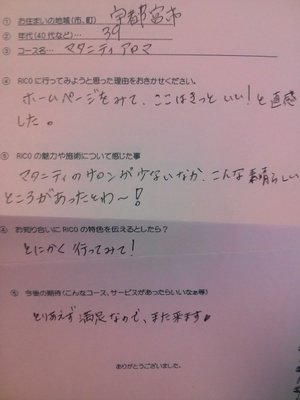 ① お住まいの地域(市、町) 宇都宮市
② 年代(40代など)… 39
③ コース名… マタニティアロマ
④ RICOに行ってみようと思った理由をおきかせください。
ホームページをみて、ここはきっといい!と直感
した。
⑤ RICOの魅力や施術について感じた事
マタニティのサロンが少ないなか、こんな素晴らしい
ところがあったとわ〜!
⑥ お知り合いにRICOの特色を伝えるとしたら?
とにかく行ってみて!
今後の期待(こんなコース、サービスがあったらいいなぁ等)
とりあえず満足なので、また来ます。
ありがとうございました。